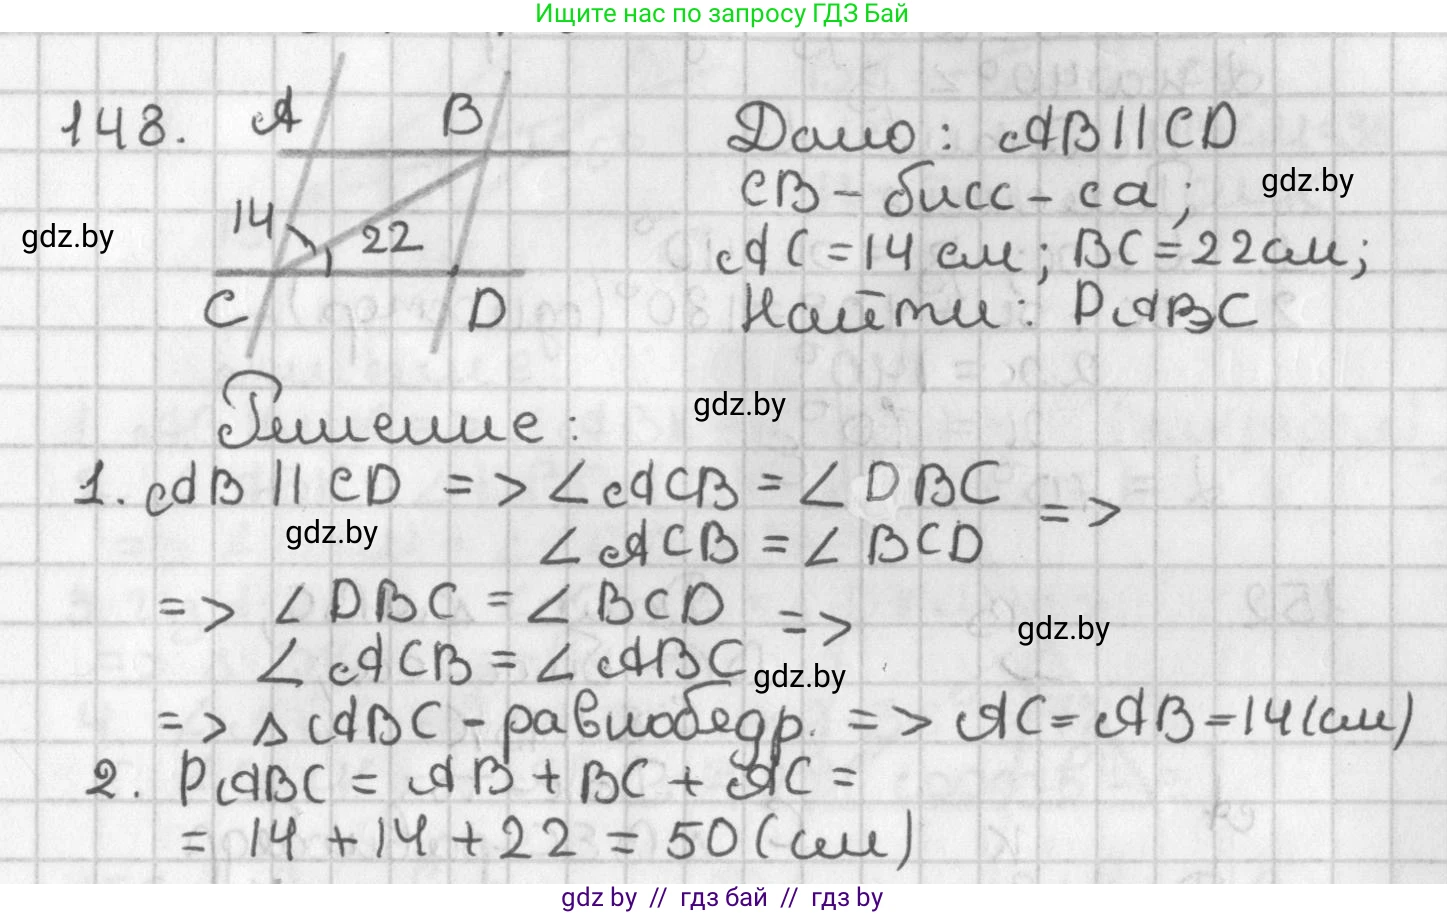 Ищите нас по запросу ГДЗ Бай
148.
A B
14 22
C D
Дано: AB || CD
CB - бисс-са;
AC = 14 см; BC = 22 см;
Найти: PABC
gdz.by
gdz.by
gdz.by
Решение:
1. AB || CD => ∠ACB = ∠DBC
∠ACB = ∠BCD =>
gdz.by
=> ∠DBC = ∠BCD
∠ACB = ∠ABC =>
gdz.by
gdz.by
=> ΔABC - равнобедр. => AC = AB = 14 (см)
2. PABC = AB + BC + AC =
= 14 + 14 + 22 = 50 (см)
gdz by // гдз бай // гдз by